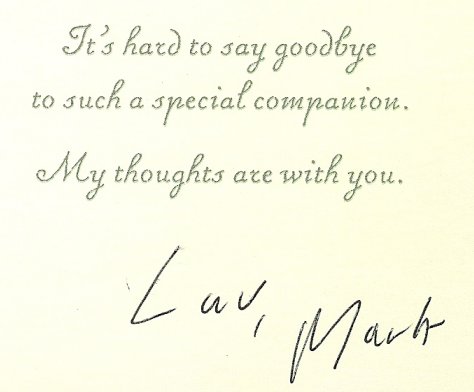 It's hard to say goodbye
to such a special companion.
My thoughts are with you.
Luv, Mark